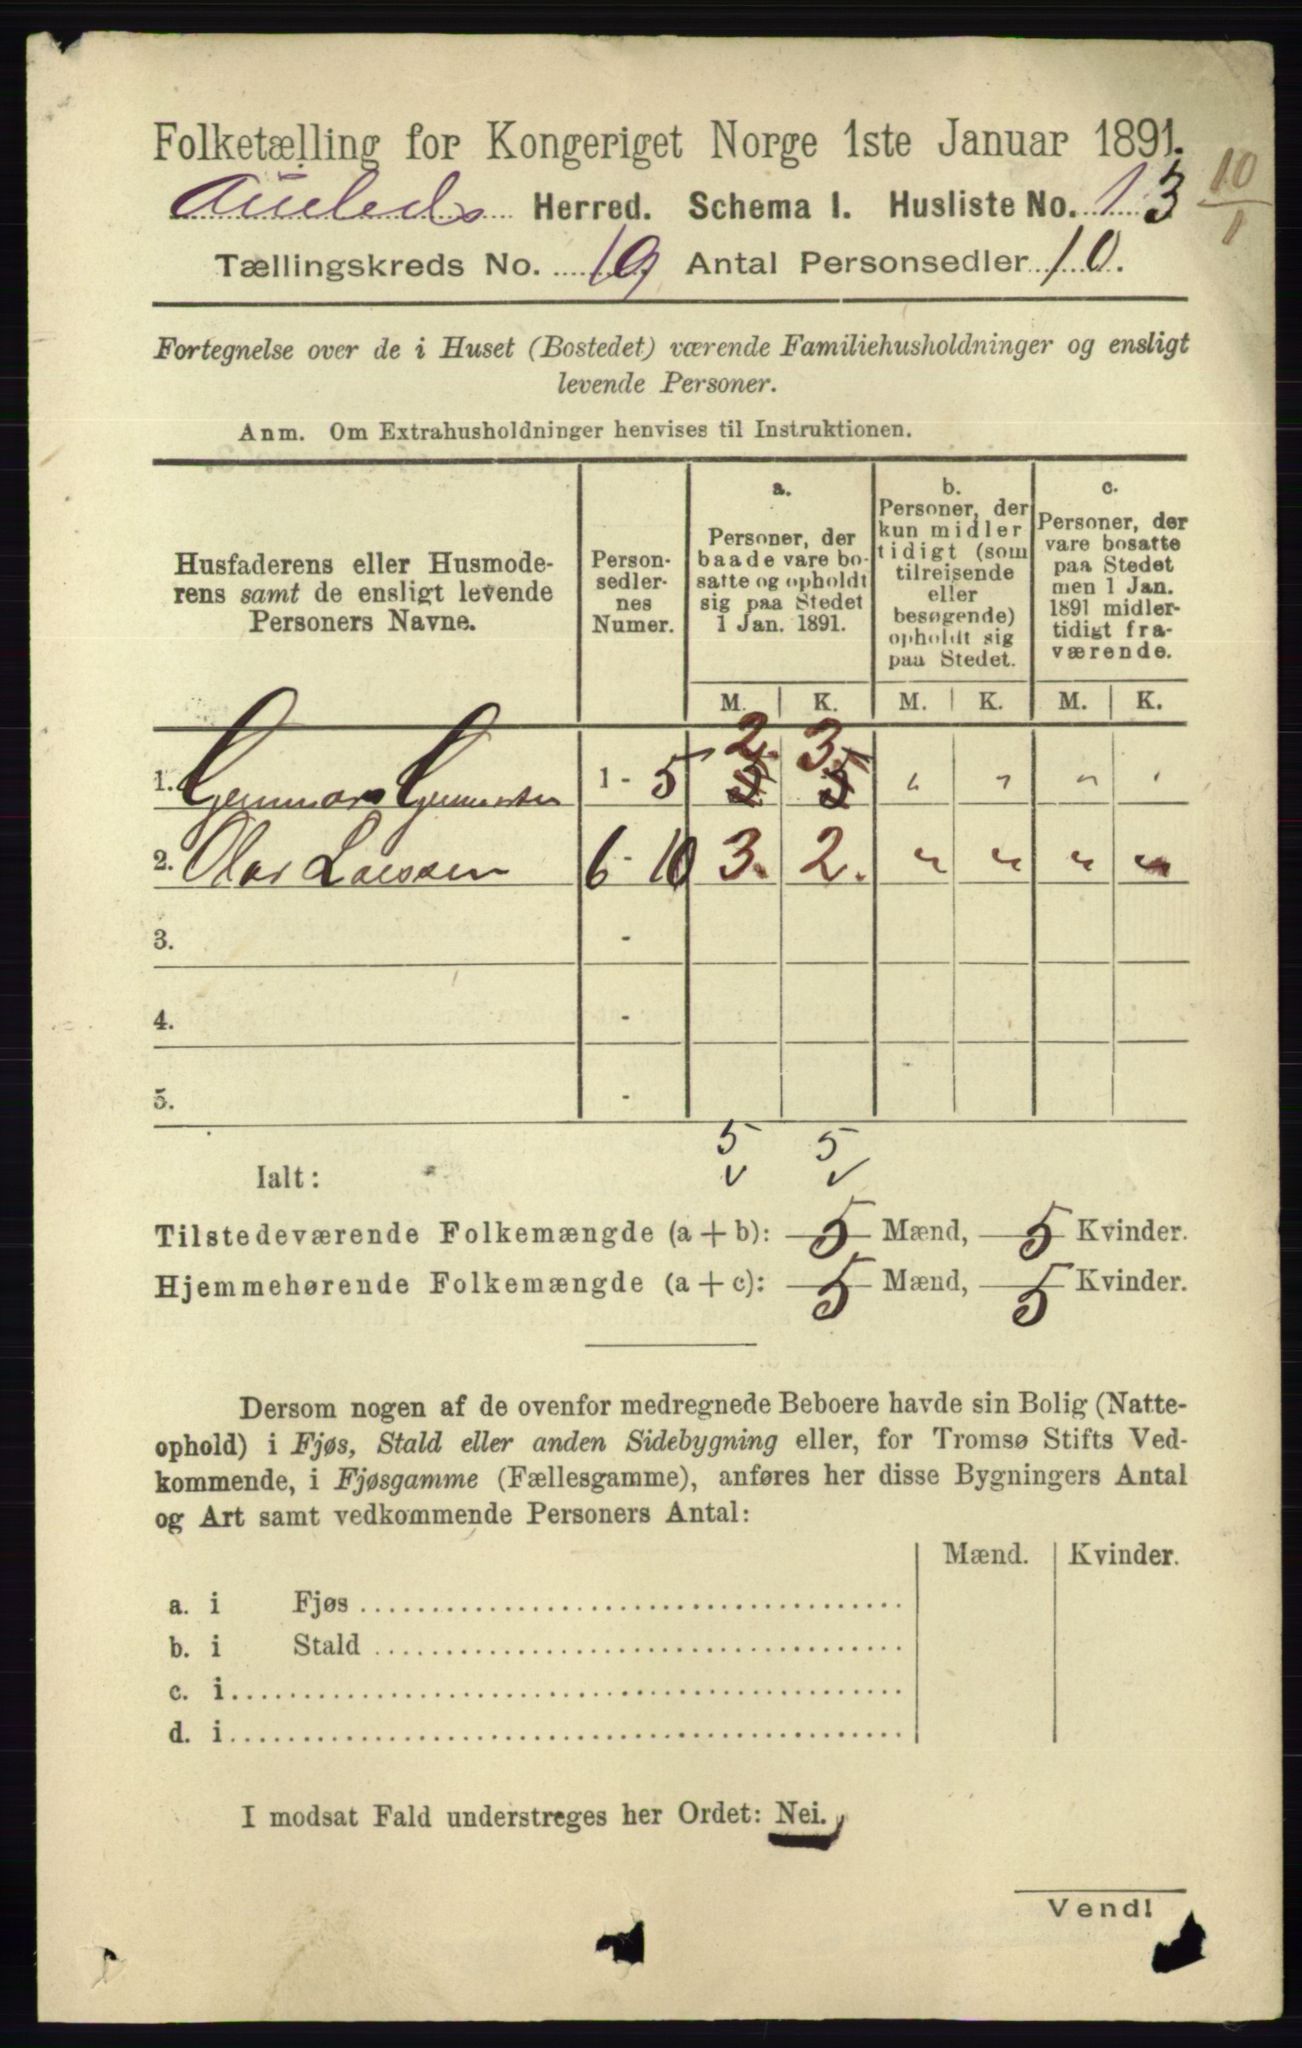 Folketælling for Kongeriget Norge 1ste Januar 1891.
Herred. Schema I. Husliste No. 13
10
1
Tællingskreds No. 19 Antal Personsedler 10.
Fortegnelse over de i Huset (Bostedet) værende Familiehusholdninger og ensligt
levende Personer.
Anm. Om Extrahusholdninger henvises til Instruktionen.
Husfaderens eller Husmode-
rens samt de ensligt levende
Personers Navne.
Person-
sedler-
nes
Numer.
a.
Personer, der
baade vare bo-
satte og opholdt
sig paa Stedet
1 Jan. 1891.
b.
Personer, der
kun midler
tidigt (som
tilreisende
eller
besøgende)
opholdt sig
paa Stedet.
c.
Personer, der
vare bosatte
paa Stedet
men 1 Jan.
1891 midler-
tidigt fra-
værende.
M. K. M. K. M. K.
2. 3.
1. Gunnar 1 - 5 5 5 " " " "
2. Olav Larssen 6 - 10 3. 2. " " " "
3. -
4. -
5. -
5 5
Ialt: v v
Tilstedeværende Folkemængde (a + b): 5 Mænd, 5 Kvinder.
Hjemmehørende Folkemængde (a + c): 5 Mænd, 5 Kvinder.
Dersom nogen af de ovenfor medregnede Beboere havde sin Bolig (Natte-
ophold) i Fjøs, Stald eller anden Sidebygning eller, for Tromsø Stifts Ved-
kommende, i Fjøsgamme (Fællesgamme), anføres her disse Bygningers Antal
og Art samt vedkommende Personers Antal:
Mænd. Kvinder.
a. i Fjøs
b. i Stald
c. i
d. i
I modsat Fald understreges her Ordet: Nei.
Vend!